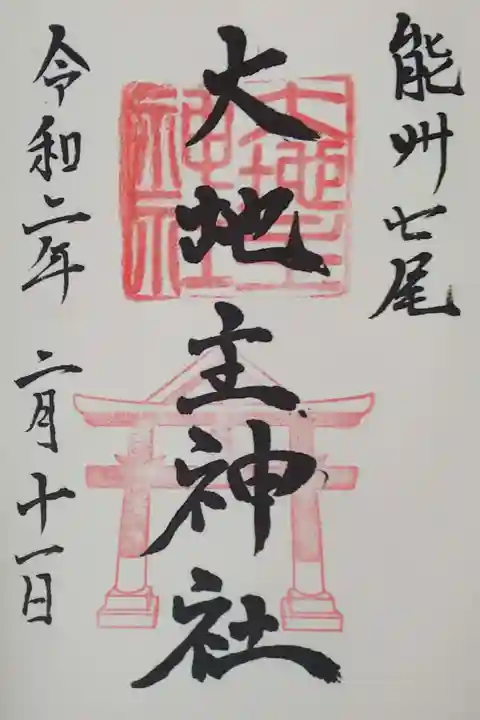 能州七尾
大地主神社
大地主神社
令和二年 二月十一日